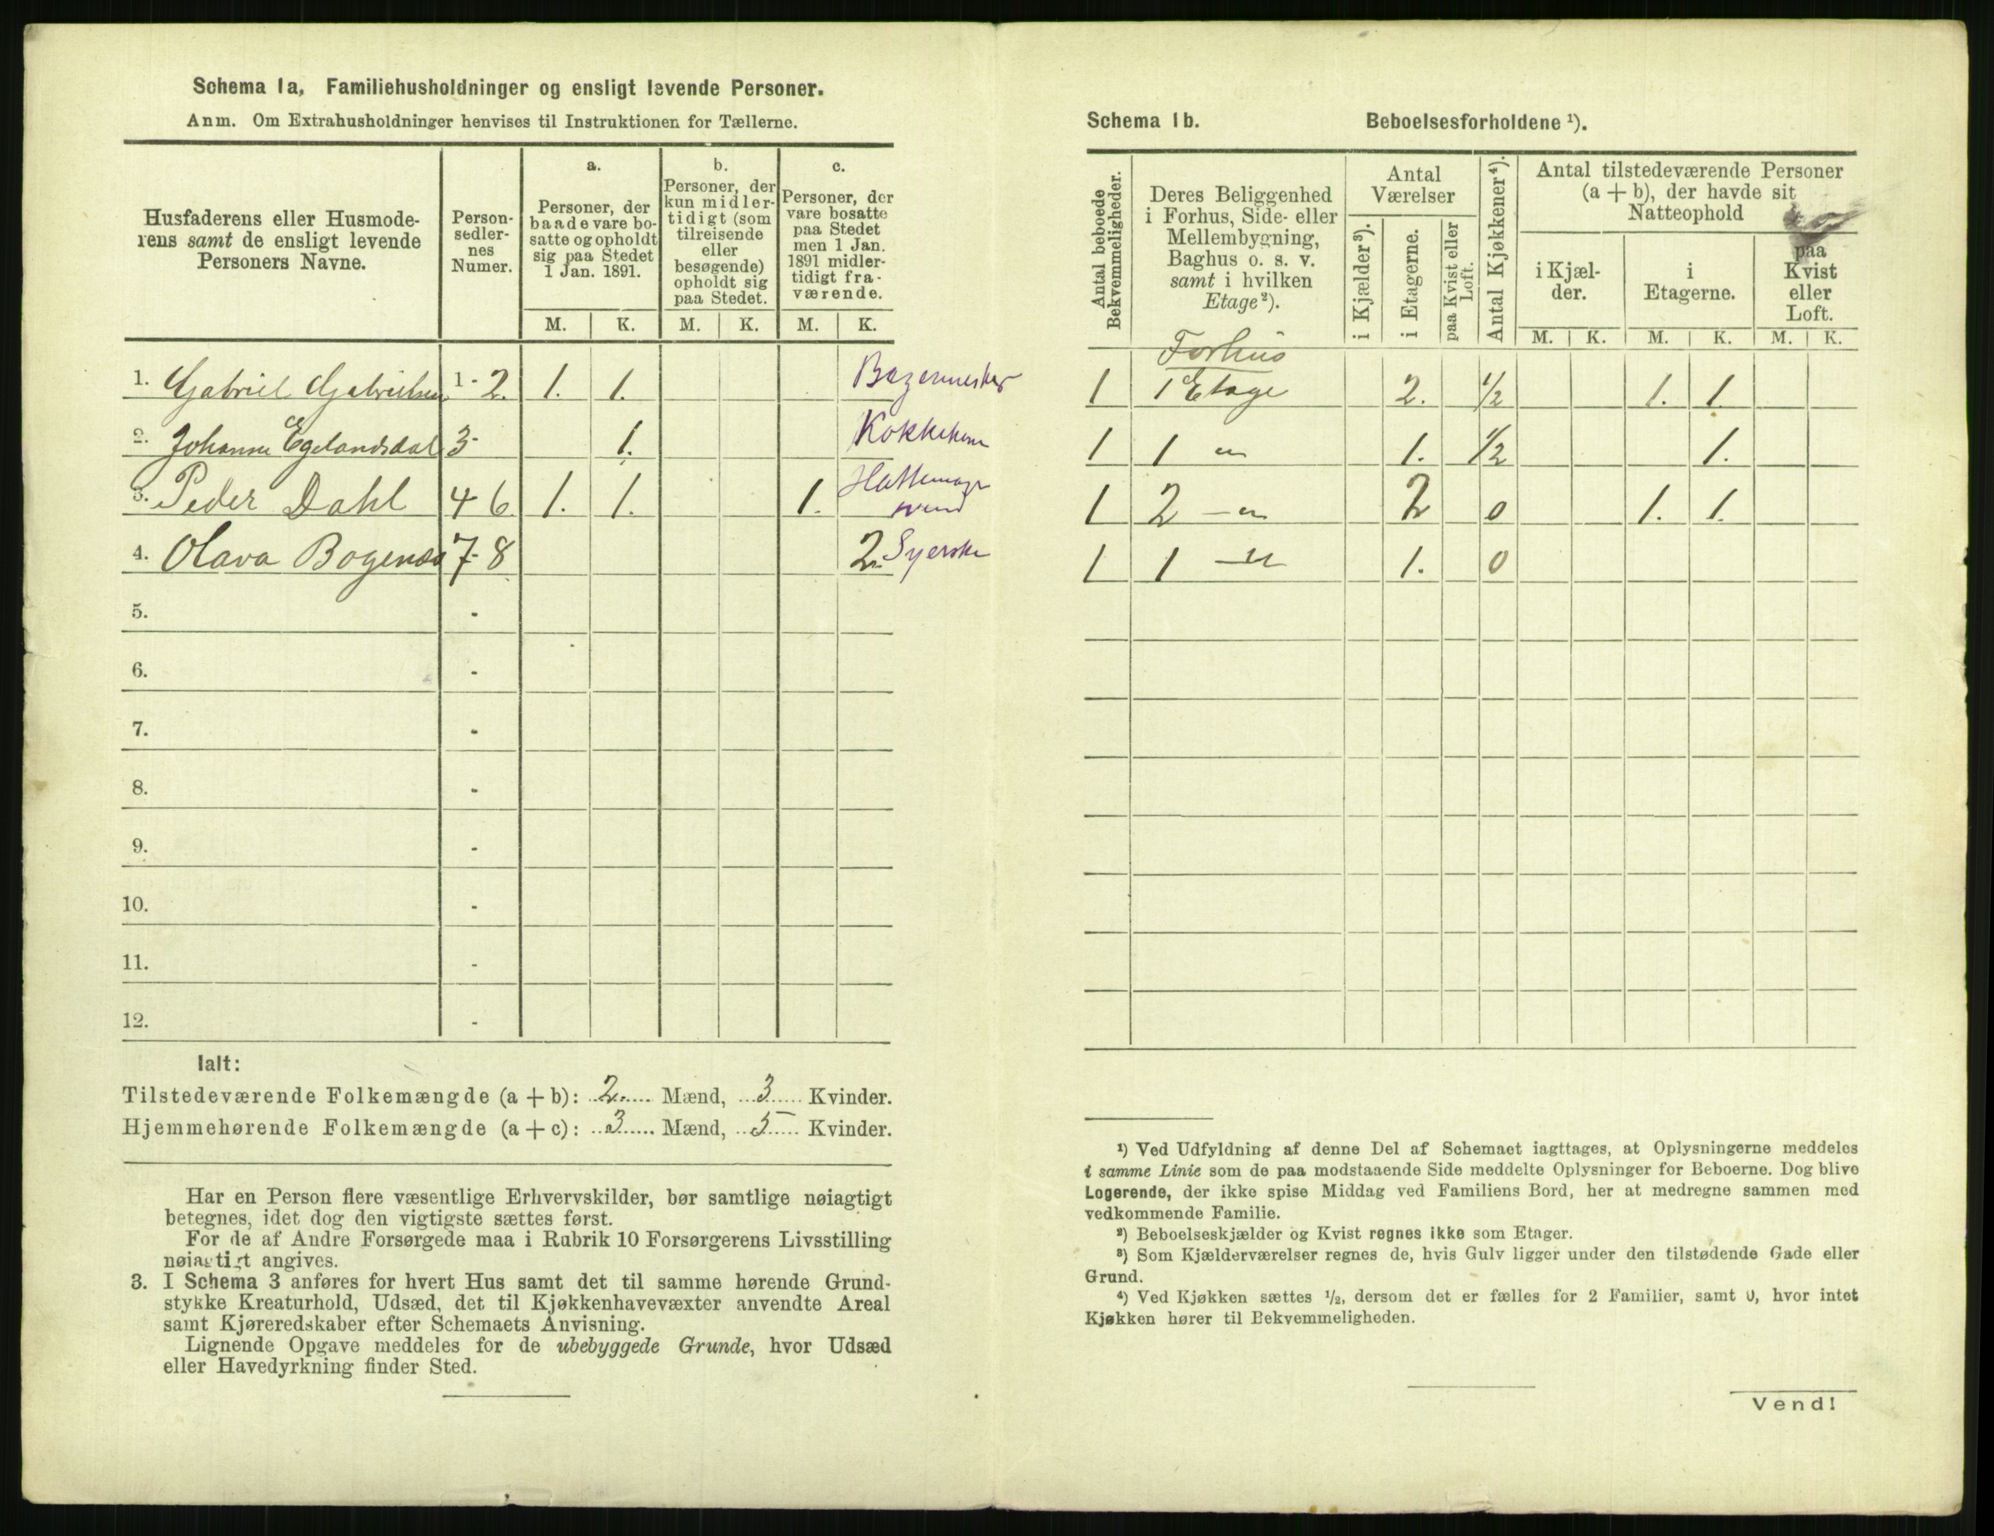 Schema 1a. Familiehusholdninger og ensligt levende Personer.
Anm. Om Extrahusholdninger henvises til Instruktionen for Tællerne.
Husfaderens eller Husmode-
rens samt de ensligt levende
Personers Navne.
Person-
sedler-
nes
Numer.
a.
Personer, der
baade vare bo-
satte og opholdt
sig paa Stedet
1 Jan. 1891.
b.
Personer, der
kun midler-
tidigt (som
tilreisende
eller
besøgende)
opholdt sig
paa Stedet.
c.
Personer, der
vare bosatte
paa Stedet
men 1 Jan.
1891 midler-
tidigt fra-
værende.
M. K. M. K. M. K.
1. Gabriel Gabrielsen 1 - 2. 1. 1.
2. Johanne Egelandsdal 3- 1. Kokkekone
3. Peder Dahl 4-6 1. 1. 1.
4. Olava Bogense 7-8 2. Syerske
5. -
6. -
7. -
8. -
9. -
10. -
11. -
12. -
Ialt:
Tilstedeværende Folkemængde (a + b): 2 Mænd, 3 Kvinder.
Hjemmehørende Folkemængde (a + c): 3 Mænd, 5 Kvinder.
Har en Person flere væsentlige Erhvervskilder, bør samtlige nøiagtigt
betegnes, idet dog den vigtigste sættes først.
For de af Andre Forsørgede maa i Rubrik 10 Forsørgerens Livsstilling
nøiagtigt angives.
3. I Schema 3 anføres for hvert Hus samt det til samme hørende Grund-
stykke Kreaturhold, Udsæd, det til Kjøkkenhavevæxter anvendte Areal
samt Kjøreredskaber efter Schemaets Anvisning.
Lignende Opgave meddeles for de ubebyggede Grunde, hvor Udsæd
eller Havedyrkning finder Sted.
Schema 1b. Beboelsesforholdene ¹).
Antal beboede
Bekvemmeligheder.
Deres Beliggenhed
i Forhus, Side- eller
Mellembygning,
Baghus o. s. v.
samt i hvilken
Etage ²).
Antal
Værelser
i Kjælder ³).
i Etagerne.
paa Kvist eller
Loft.
Antal Kjøkkener ⁴).
Antal tilstedeværende Personer
(a + b), der havde sit
Natteophold
i Kjæl-
der.
i
Etagerne.
paa
Kvist
eller
Loft.
M. K. M. K. M. K.
Forhus
1 1 Etage 2. 1/2 1. 1.
1 1 — 1. 1/2 1.
1 2 — 2 0 1. 1.
1 1 — 1. 0
¹) Ved Udfyldning af denne Del af Schemaet iagttages, at Oplysningerne meddeles
i samme Linie som de paa modstaaende Side meddelte Oplysninger for Beboerne. Dog blive
Logerende, der ikke spise Middag ved Familiens Bord, her at medregne sammen med
vedkommende Familie.
²) Beboelseskjælder og Kvist regnes ikke som Etager.
³) Som Kjælderværelser regnes de, hvis Gulv ligger under den tilstødende Gade eller
Grund.
⁴) Ved Kjøkken sættes ½, dersom det er fælles for 2 Familier, samt 0, hvor intet
Kjøkken hører til Bekvemmeligheden.
Vend!